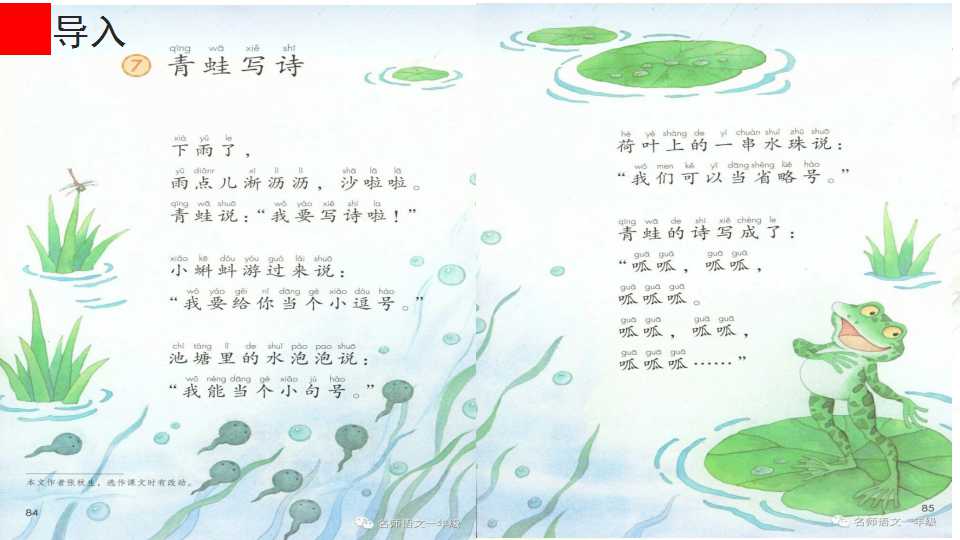 导入
qīng wā xiě shī
7 青蛙写诗
xià yǔ le
下雨了，
yǔ diǎnr xī lì lì shā lā lā
雨点儿淅沥沥，沙啦啦。
qīng wā shuō wǒ yào xiě shī la
青蛙说：“我要写诗啦！”
xiǎo kē dǒu yóu guò lái shuō
小蝌蚪游过来说：
wǒ yào gěi nǐ dāng gè xiǎo dòu hào
“我要给你当个小逗号。”
chí táng lǐ de shuǐ pào pao shuō
池塘里的水泡泡说：
wǒ néng dāng gè xiǎo jù hào
“我能当个小句号。”
本文作者张秋生，选作课文时有改动。
84
名师语文一年级
hé yè shàng de yí chuàn shuǐ zhū shuō
荷叶上的一串水珠说：
wǒ men kě yǐ dāng shěng lüè hào
“我们可以当省略号。”
qīng wā de shī xiě chéng le
青蛙的诗写成了：
guā guā guā guā
“呱呱，呱呱，
guā guā guā
呱呱呱。
guā guā guā guā
呱呱，呱呱，
guā guā guā
呱呱呱……”
85
名师语文一年级